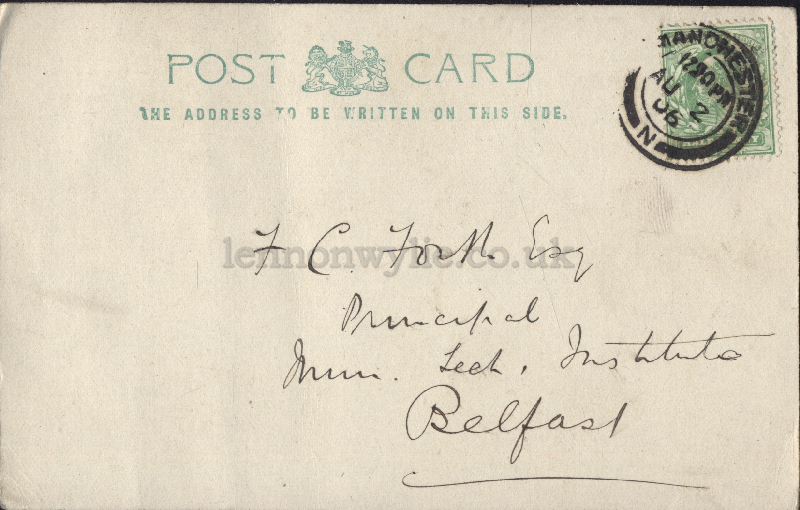 POST CARD
THE ADDRESS TO BE WRITTEN ON THIS SIDE.
MANCHESTER
12 30 PM
AU 2
06
N
lennonwylie.co.uk
F. C. Forth Esq
Principal
Mun. Tech. Institute
Belfast